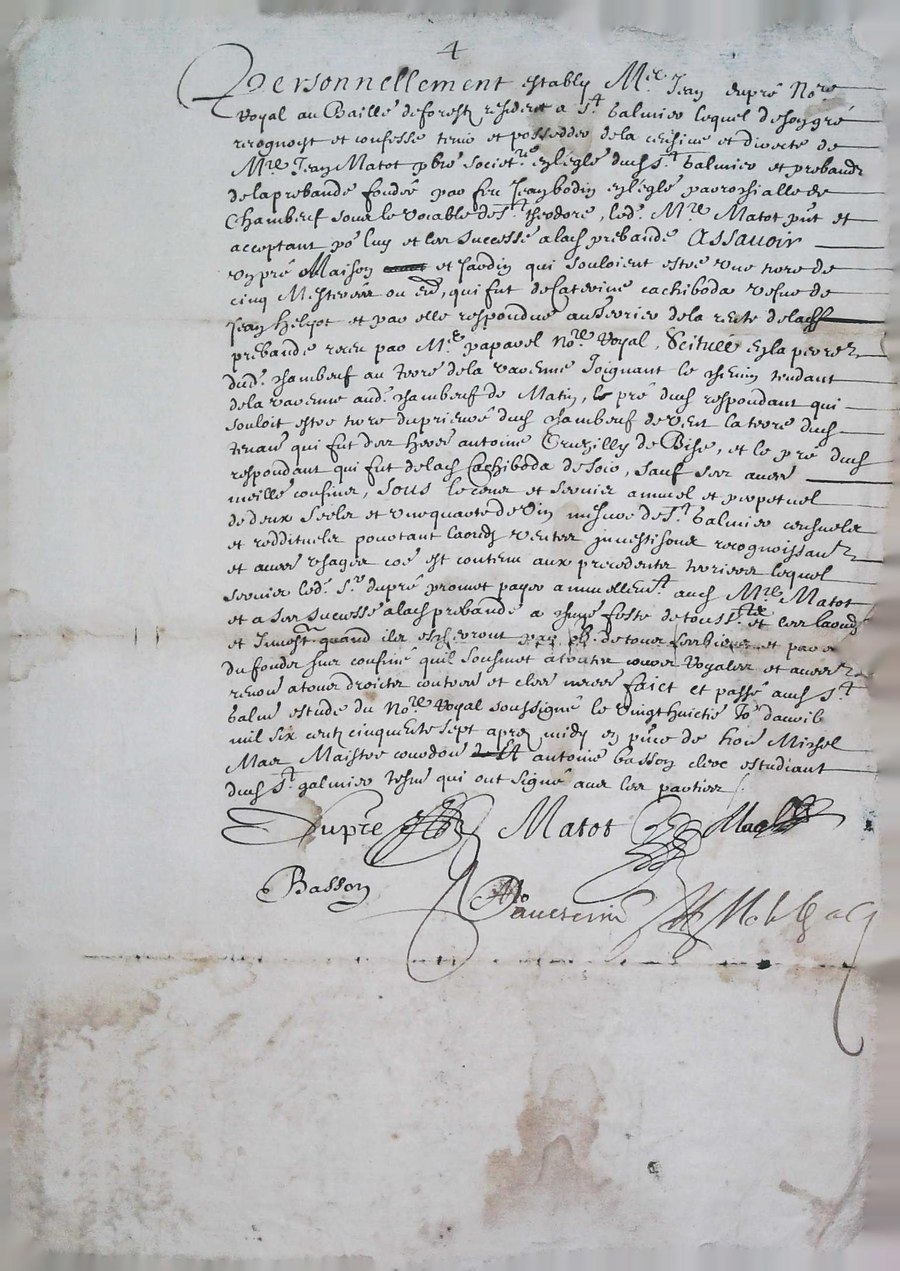 4
Personnellement estably Me Jean dupré Nore
Royal au Baillé de forestz residant a St Galmier lequel de son gré
recognoist et confesse tenir et posseder de la censive et directe de
Mre Jean Matot pbre societre en legle dud St galmier et prebandr
de la prebande fondée par feu Jean bodin en legle parrochialle de
Chambeuf soubz le vocable de St theodore, led. Mre Matot pnt et
acceptant po luy et ses successrs a lad prebande Assavoir
un pré Maison et Jardin qui souloient estre une terre de
cinq Mesterées ou env, qui fut de Caterine cachiboda vefve de
Jean et par elle respondue au terrier de la rente de lad
prebande receu par Me papavel Nore Royal, Scitués en la perrez
dud. chambeuf au terre de la varenne Joignant le chemin tendant
de la varenne aud. chambeuf de Matin, le pré dud respondant qui
souloit estre terre du prieuré dud chambeuf de vent la terre dud
tenan qui fut des hers antoine de Bise, et le pré dud
respondant qui fut de lad Cachiboda de soir, sauf ses autres
meilleurs confins, Sous le cens et servis annuel et perpetuel
de deux et une quarte de vin mesure de St galmier censuelz
et reddituelz portant laodz ventes investisons recognoissances
et autres usages coe est contenu aux precedentz terriers lequel
servis led. Sr dupré promet payer annuellemt aud Mre Matot
et a ses successrs a lad prebande a chune feste de toussts et les laodz
et quand ilz eschevront de tous ses biens et par
du fondz sus confiné quil soubmet a toutes cours Royales et autres
renon a tous droictz contres et clses faict et passé aud St
galmr estude du Nore Royal soussigné le vingthuictie Jor d'avril
mil six centz cinquante sept apres midy en pnce de hon Michel
Mas Maistre cordon et antoine basson clerc estudiant
dud St galmier tesm qui ont signé avec les parties
Dupré Matot
Basson